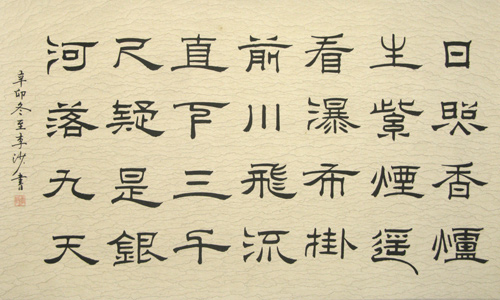 日照香爐
生紫煙遥
看瀑布掛
前川飛流
直下三千
尺疑是銀
河落九天
辛卯冬至李沙書